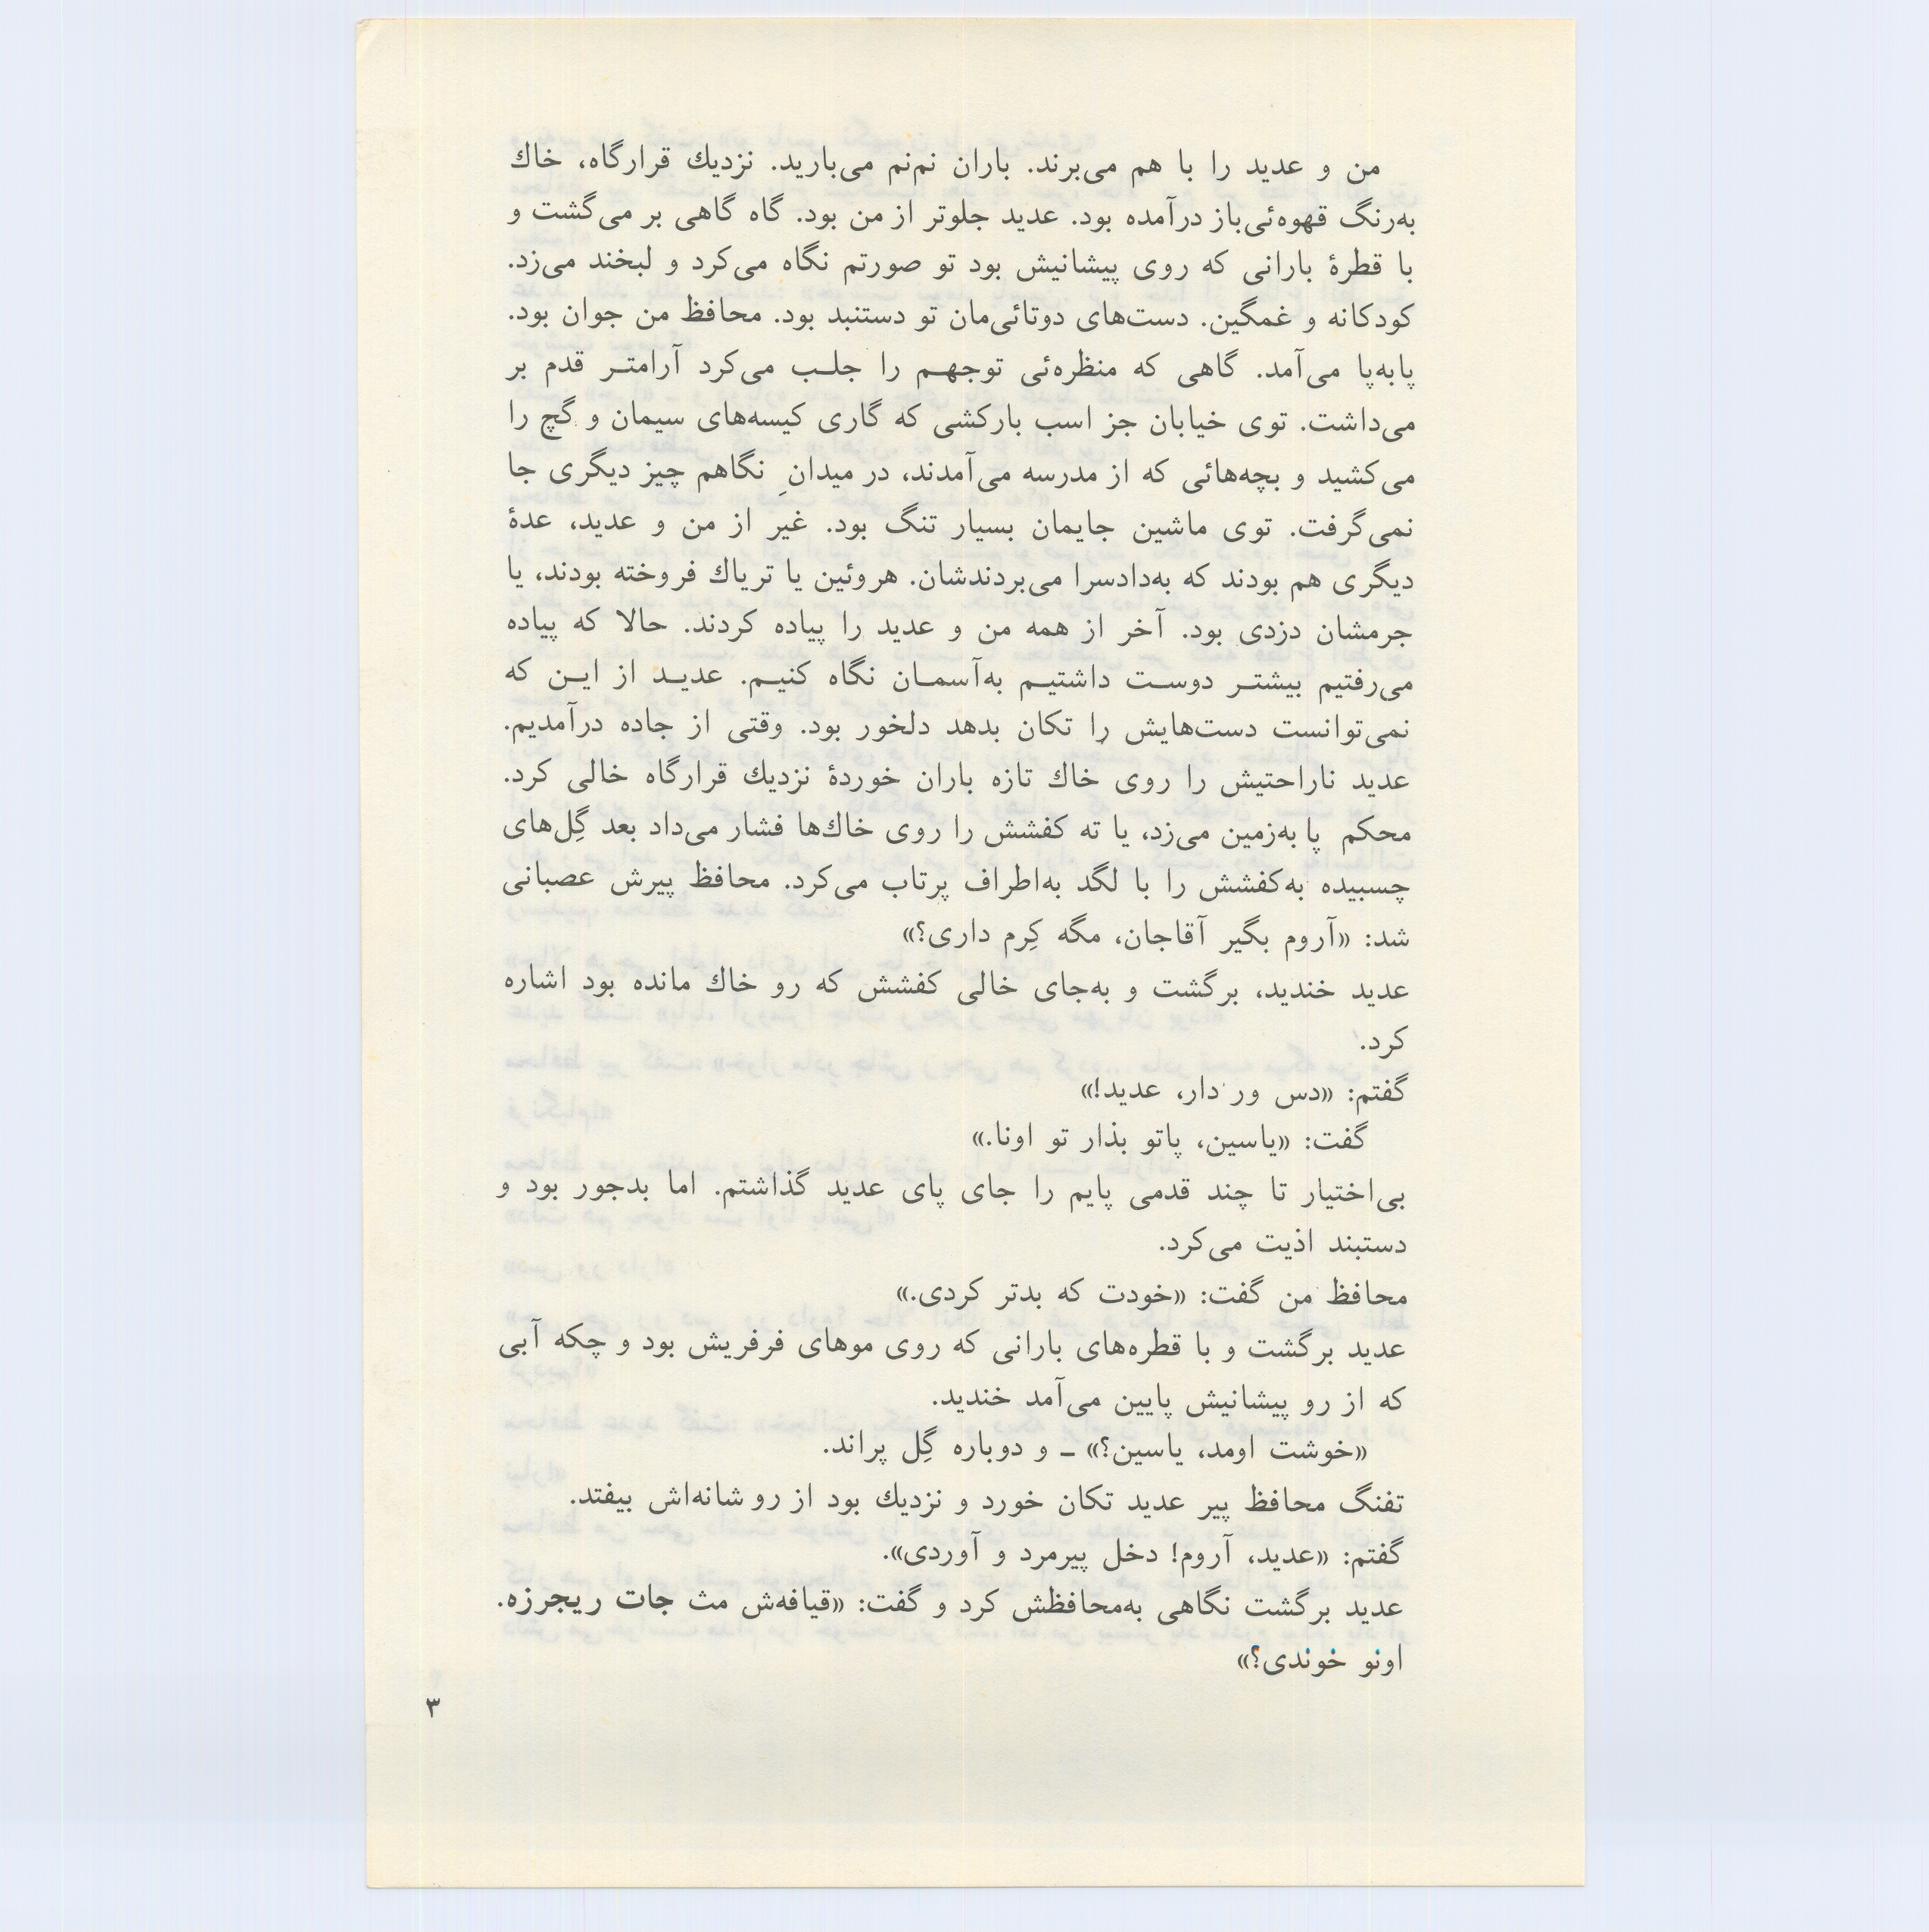 من و عدید را با هم می‌برند. باران نم‌نم می‌بارید. نزدیك قرارگاه، خاك
به‌رنگ قهوه‌ئی‌باز درآمده بود. عدید جلوتر از من بود. گاه گاهی بر می‌گشت و
با قطرهٔ بارانی که روی پیشانیش بود تو صورتم نگاه می‌کرد و لبخند می‌زد.
کودکانه و غمگین. دست‌های دوتائی‌مان تو دستنبد بود. محافظ من جوان بود.
پابه‌پا می‌آمد. گاهی که منظره‌ئی توجهم را جلب می‌کرد آرامتر قدم بر
می‌داشت. توی خیابان جز اسب بارکشی که گاری کیسه‌های سیمان و گچ را
می‌کشید و بچه‌هائی که از مدرسه می‌آمدند، در میدانِ نگاهم چیز دیگری جا
نمی‌گرفت. توی ماشین جایمان بسیار تنگ بود. غیر از من و عدید، عدهٔ
دیگری هم بودند که به‌دادسرا می‌بردندشان. هروئین یا تریاك فروخته بودند، یا
جرمشان دزدی بود. آخر از همه من و عدید را پیاده کردند. حالا که پیاده
می‌رفتیم بیشتر دوست داشتیم به‌آسمان نگاه کنیم. عدید از این که
نمی‌توانست دست‌هایش را تکان بدهد دلخور بود. وقتی از جاده درآمدیم.
عدید ناراحتیش را روی خاك تازه باران خوردهٔ نزدیك قرارگاه خالی کرد.
محکم پا به‌زمین می‌زد، یا ته کفشش را روی خاك‌ها فشار می‌داد بعد گِل‌های
چسبیده به‌کفشش را با لگد به‌اطراف پرتاب می‌کرد. محافظ پیرش عصبانی
شد: «آروم بگیر آقاجان، مگه کِرم داری؟»
عدید خندید، برگشت و به‌جای خالی کفشش که رو خاك مانده بود اشاره
کرد.
گفتم: «دس ور دار، عدید!»
گفت: «یاسین، پاتو بذار تو اونا.»
بی‌اختیار تا چند قدمی پایم را جای پای عدید گذاشتم. اما بدجور بود و
دستبند اذیت می‌کرد.
محافظ من گفت: «خودت که بدتر کردی.»
عدید برگشت و با قطره‌های بارانی که روی موهای فرفریش بود و چکه آبی
که از رو پیشانیش پایین می‌آمد خندید.
«خوشت اومد، یاسین؟» ـ و دوباره گِل پراند.
تفنگ محافظ پیر عدید تکان خورد و نزدیك بود از رو شانه‌اش بیفتد.
گفتم: «عدید، آروم! دخل پیرمرد و آوردی».
عدید برگشت نگاهی به‌محافظش کرد و گفت: «قیافه‌ش مث جات ریجرزه.
اونو خوندی؟»
۳